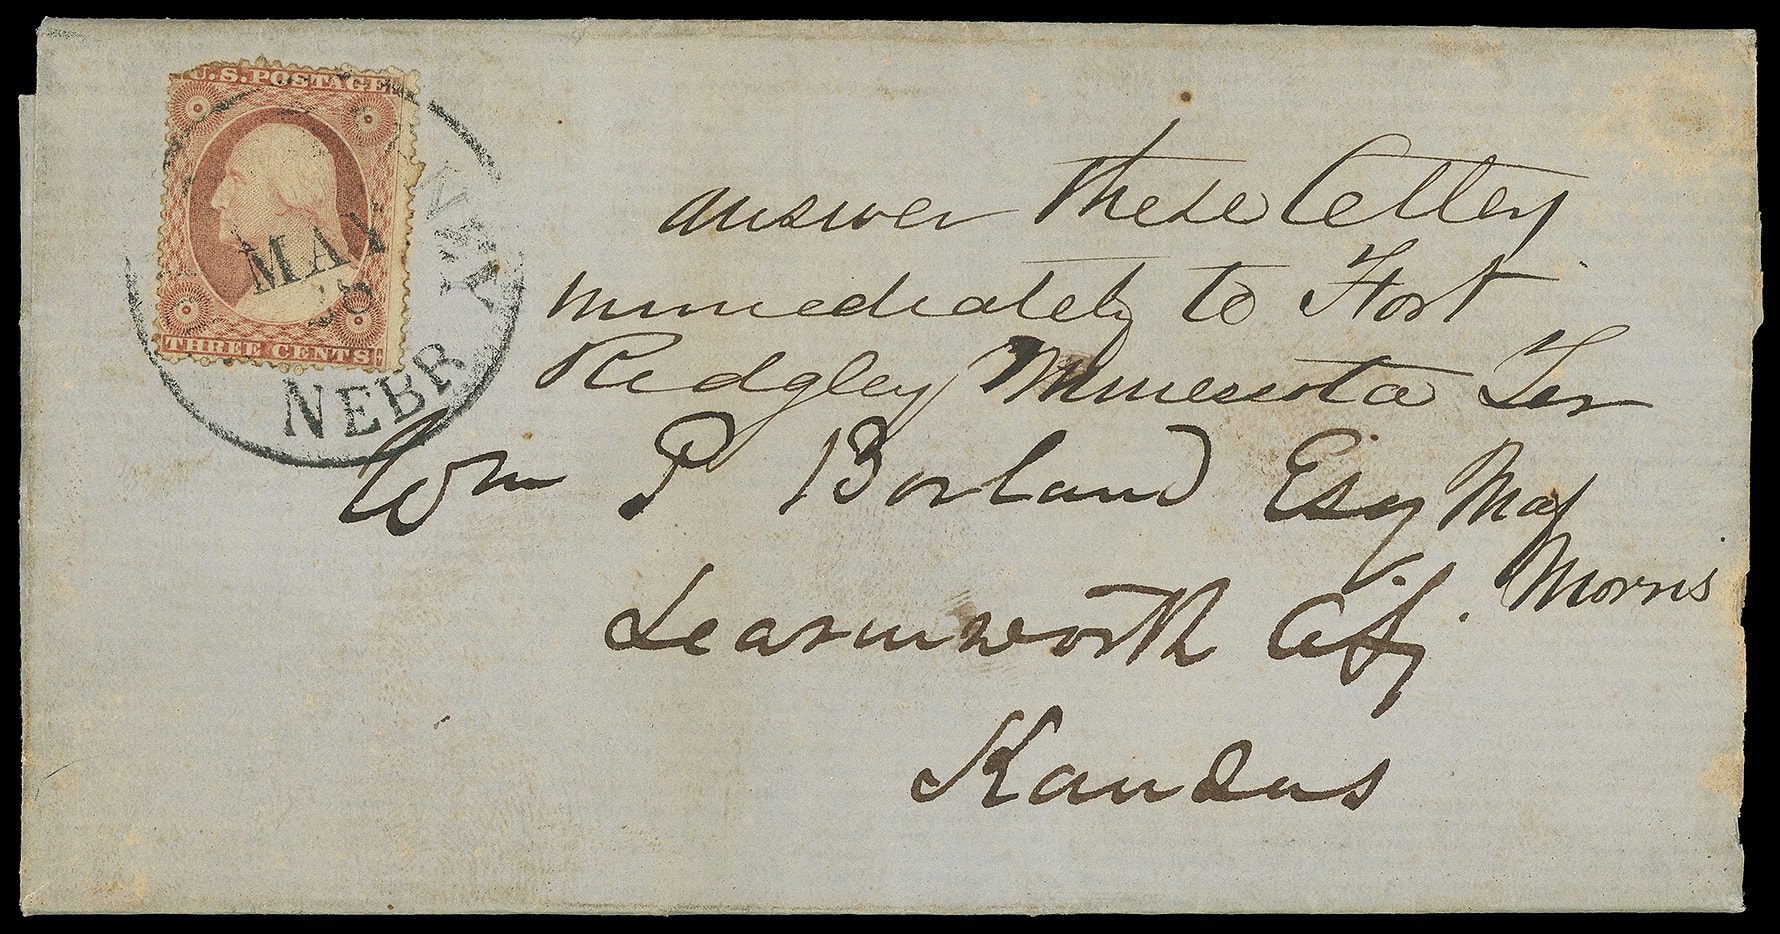 U.S. POSTAGE
MAY
28
THREE CENTS
NEBR
answer these Letters
immediately to Fort
Ridgley Minnesota Ter
Wm P Borland Esq Maj
Morris
Leavenworth City
Kansas